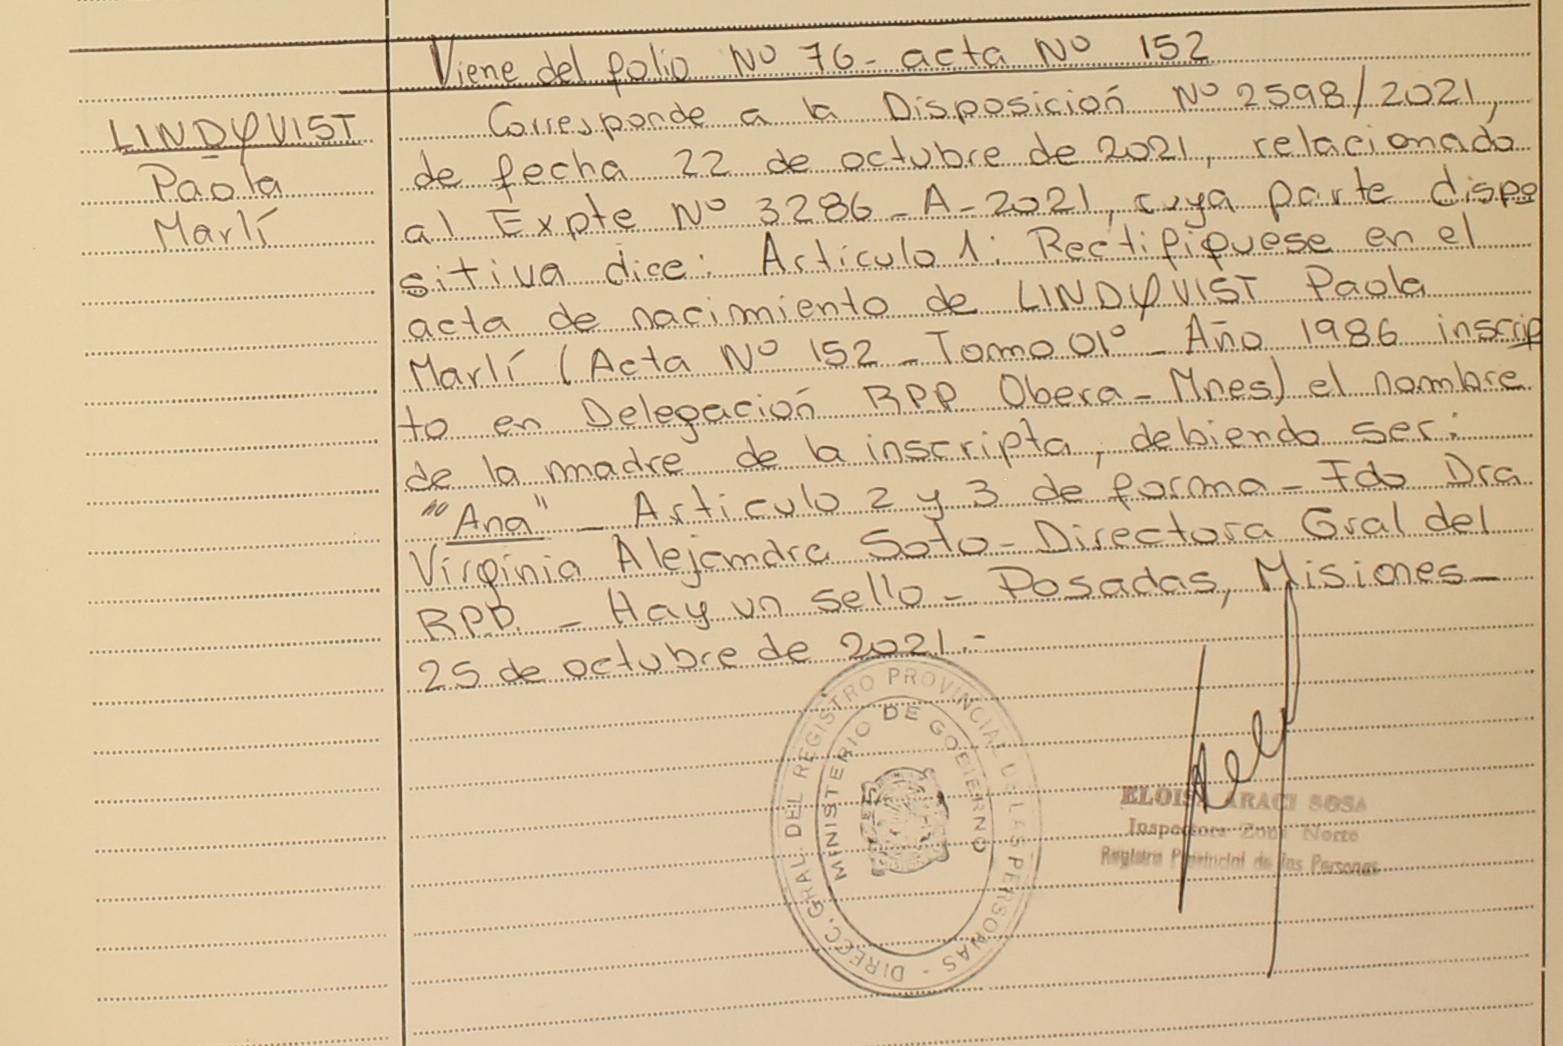 Viene del folio Nº 76 - acta Nº 152
LINDQVIST
Paola
Marlí
Corresponde a la Disposición Nº 2598/2021,
de fecha 22 de octubre de 2021, relacionado
al Expte Nº 3286 - A - 2021, cuya parte dispo
sitiva dice: Artículo 1: Rectifíquese en el
acta de nacimiento de LINDQVIST Paola
Marlí (Acta Nº 152 - Tomo 01º - Año 1986 inscrip
to en Delegación RPP Obera - Mnes) el nombre
de la madre de la inscripta, debiendo ser:
"Ana" - Articulo 2 y 3 de forma - Fdo Dra
Virginia Alejandra Soto - Directora Gral del
RPP. - Hay un sello - Posadas, Misiones -
25 de octubre de 2021.-
DIRECC. GRAL. DEL REGISTRO PROVINCIAL DE LAS PERSONAS -
MINISTERIO DE GOBIERNO
ELOISA ARACI SOSA
Inspectora Zona Norte
Registro Provincial de las Personas